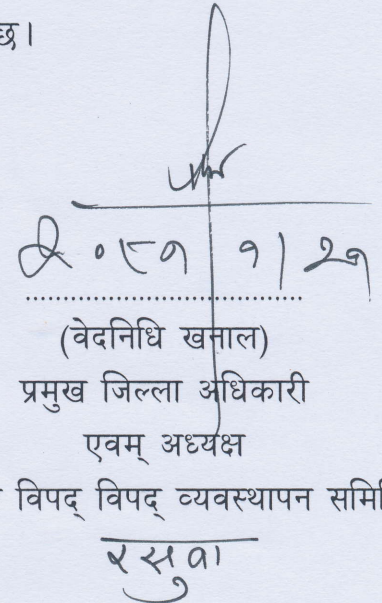 छ।
२०८१ १।२१
(वेदनिधि खनाल)
प्रमुख जिल्ला अधिकारी
एवम् अध्यक्ष
विपद् विपद् व्यवस्थापन समिति
रसुवा